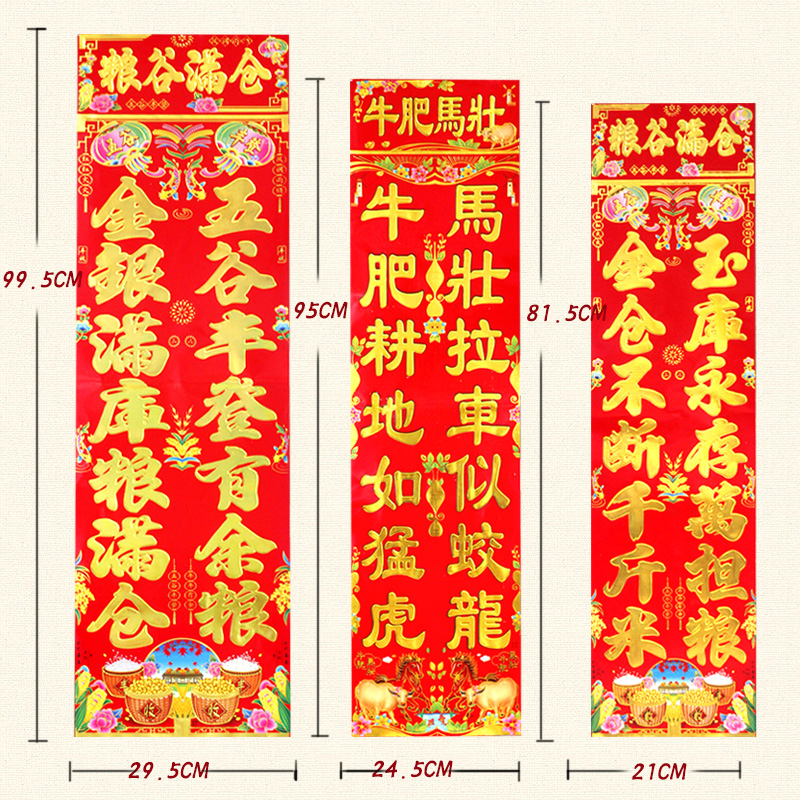 粮谷满仓
五谷丰登有余粮
金銀满库粮满仓
99.5CM
29.5CM
牛肥馬壯
馬壯拉車似蛟龍
牛肥耕地如猛虎
95CM
24.5CM
粮谷满仓
玉库永存萬担粮
金仓不断千斤米
81.5CM
21CM